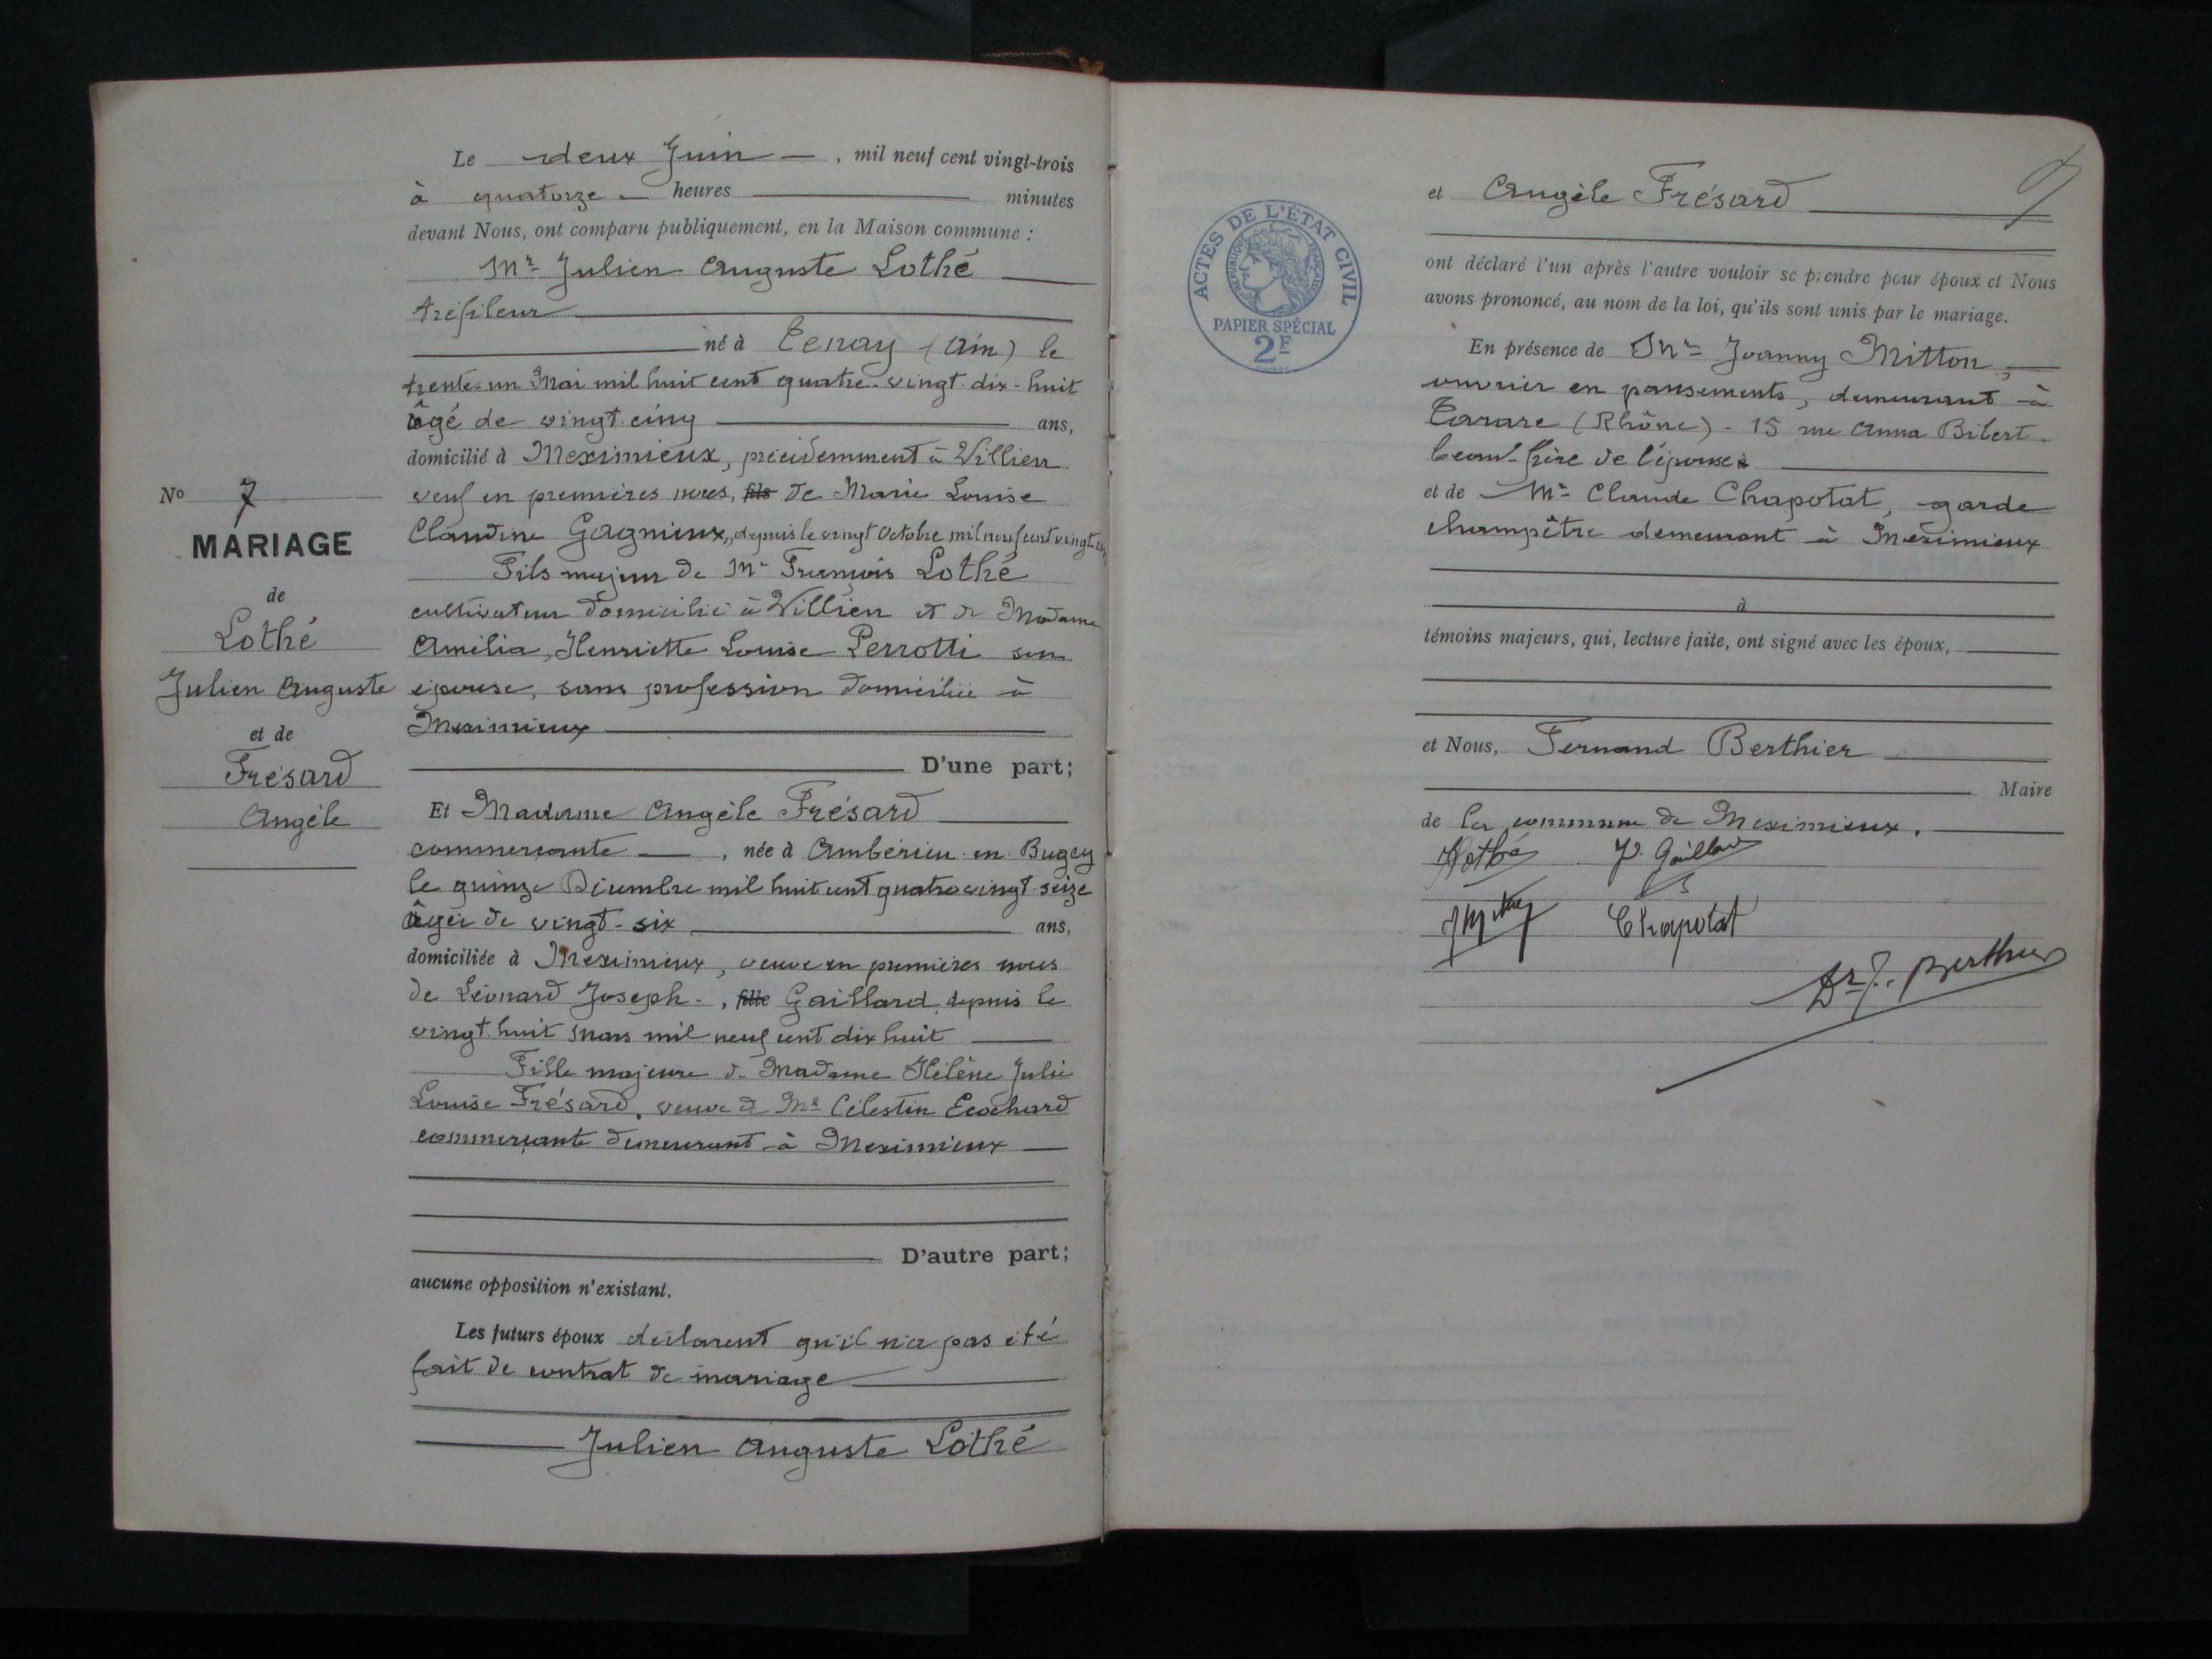 Le deux Juin — , mil neuf cent vingt-trois
à quatorze — heures minutes
devant Nous, ont comparu publiquement, en la Maison commune :
Mr Julien Auguste Lothé
tréfileur
né à Tenay (Ain) le
trente-un Mai mil huit cent quatre-vingt-dix-huit
âgé de vingt-cinq ans,
domicilié à Meximieux, précédemment à Villieu
veuf en premières noces, fils de Marie Louise
Claudine Gagnieux, depuis le vingt octobre mil neuf cent vingt un
Fils majeur de Mr François Lothé
cultivateur domicilié à Villieu et de Madame
Amélia, Henriette Louise Perrotti son
épouse, sans profession domiciliée à
Meximieux
D'une part;
Et Madame Angèle Frésard
commerçante — , née à Ambérieu-en-Bugey
le quinze Décembre mil huit cent quatre vingt-seize
âgée de vingt-six ans,
domiciliée à Meximieux, veuve en premières noces
de Léonard Joseph - , fille Gaillard, depuis le
vingt huit Mars mil neuf cent dix huit
Fille majeure de Madame Hélène Julie
Louise Frésard, veuve de Mr Célestin Ecochard
commerçante demeurant à Meximieux
D'autre part;
aucune opposition n'existant.
Les futurs époux déclarent qu'il n'a pas été
fait de contrat de mariage
Julien Auguste Lothé
No 7
MARIAGE
de
Lothé
Julien Auguste
et de
Frésard
Angèle
ACTES DE L'ÉTAT CIVIL
RÉPUBLIQUE FRANÇAISE
PAPIER SPÉCIAL
2F
et Angèle Frésard
ont déclaré l'un après l'autre vouloir se prendre pour époux et Nous
avons prononcé, au nom de la loi, qu'ils sont unis par le mariage.
En présence de Mr Joanny Mitton,
ouvrier en pansements, demeurant à
Tarare (Rhône) - 15 rue Anna Bibert.
beau-frère de l'épouse
et de Mr Claude Chapotat, garde
champêtre demeurant à Meximieux
à
témoins majeurs, qui, lecture faite, ont signé avec les époux,
et Nous, Fernand Berthier
Maire
de la commune de Meximieux.
Lothé Gaillard
Chapotat
Dr F. Berthier